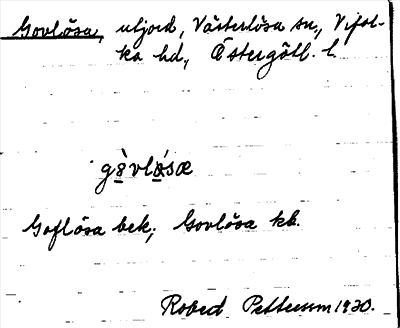 Govlösa, utjord, Västerlösa sn, Vifol-
ka hd, Östergötl. l.
gòvlǿsæ
Goflösa bek; Govlösa kb.
Robert Pettersson 1930.